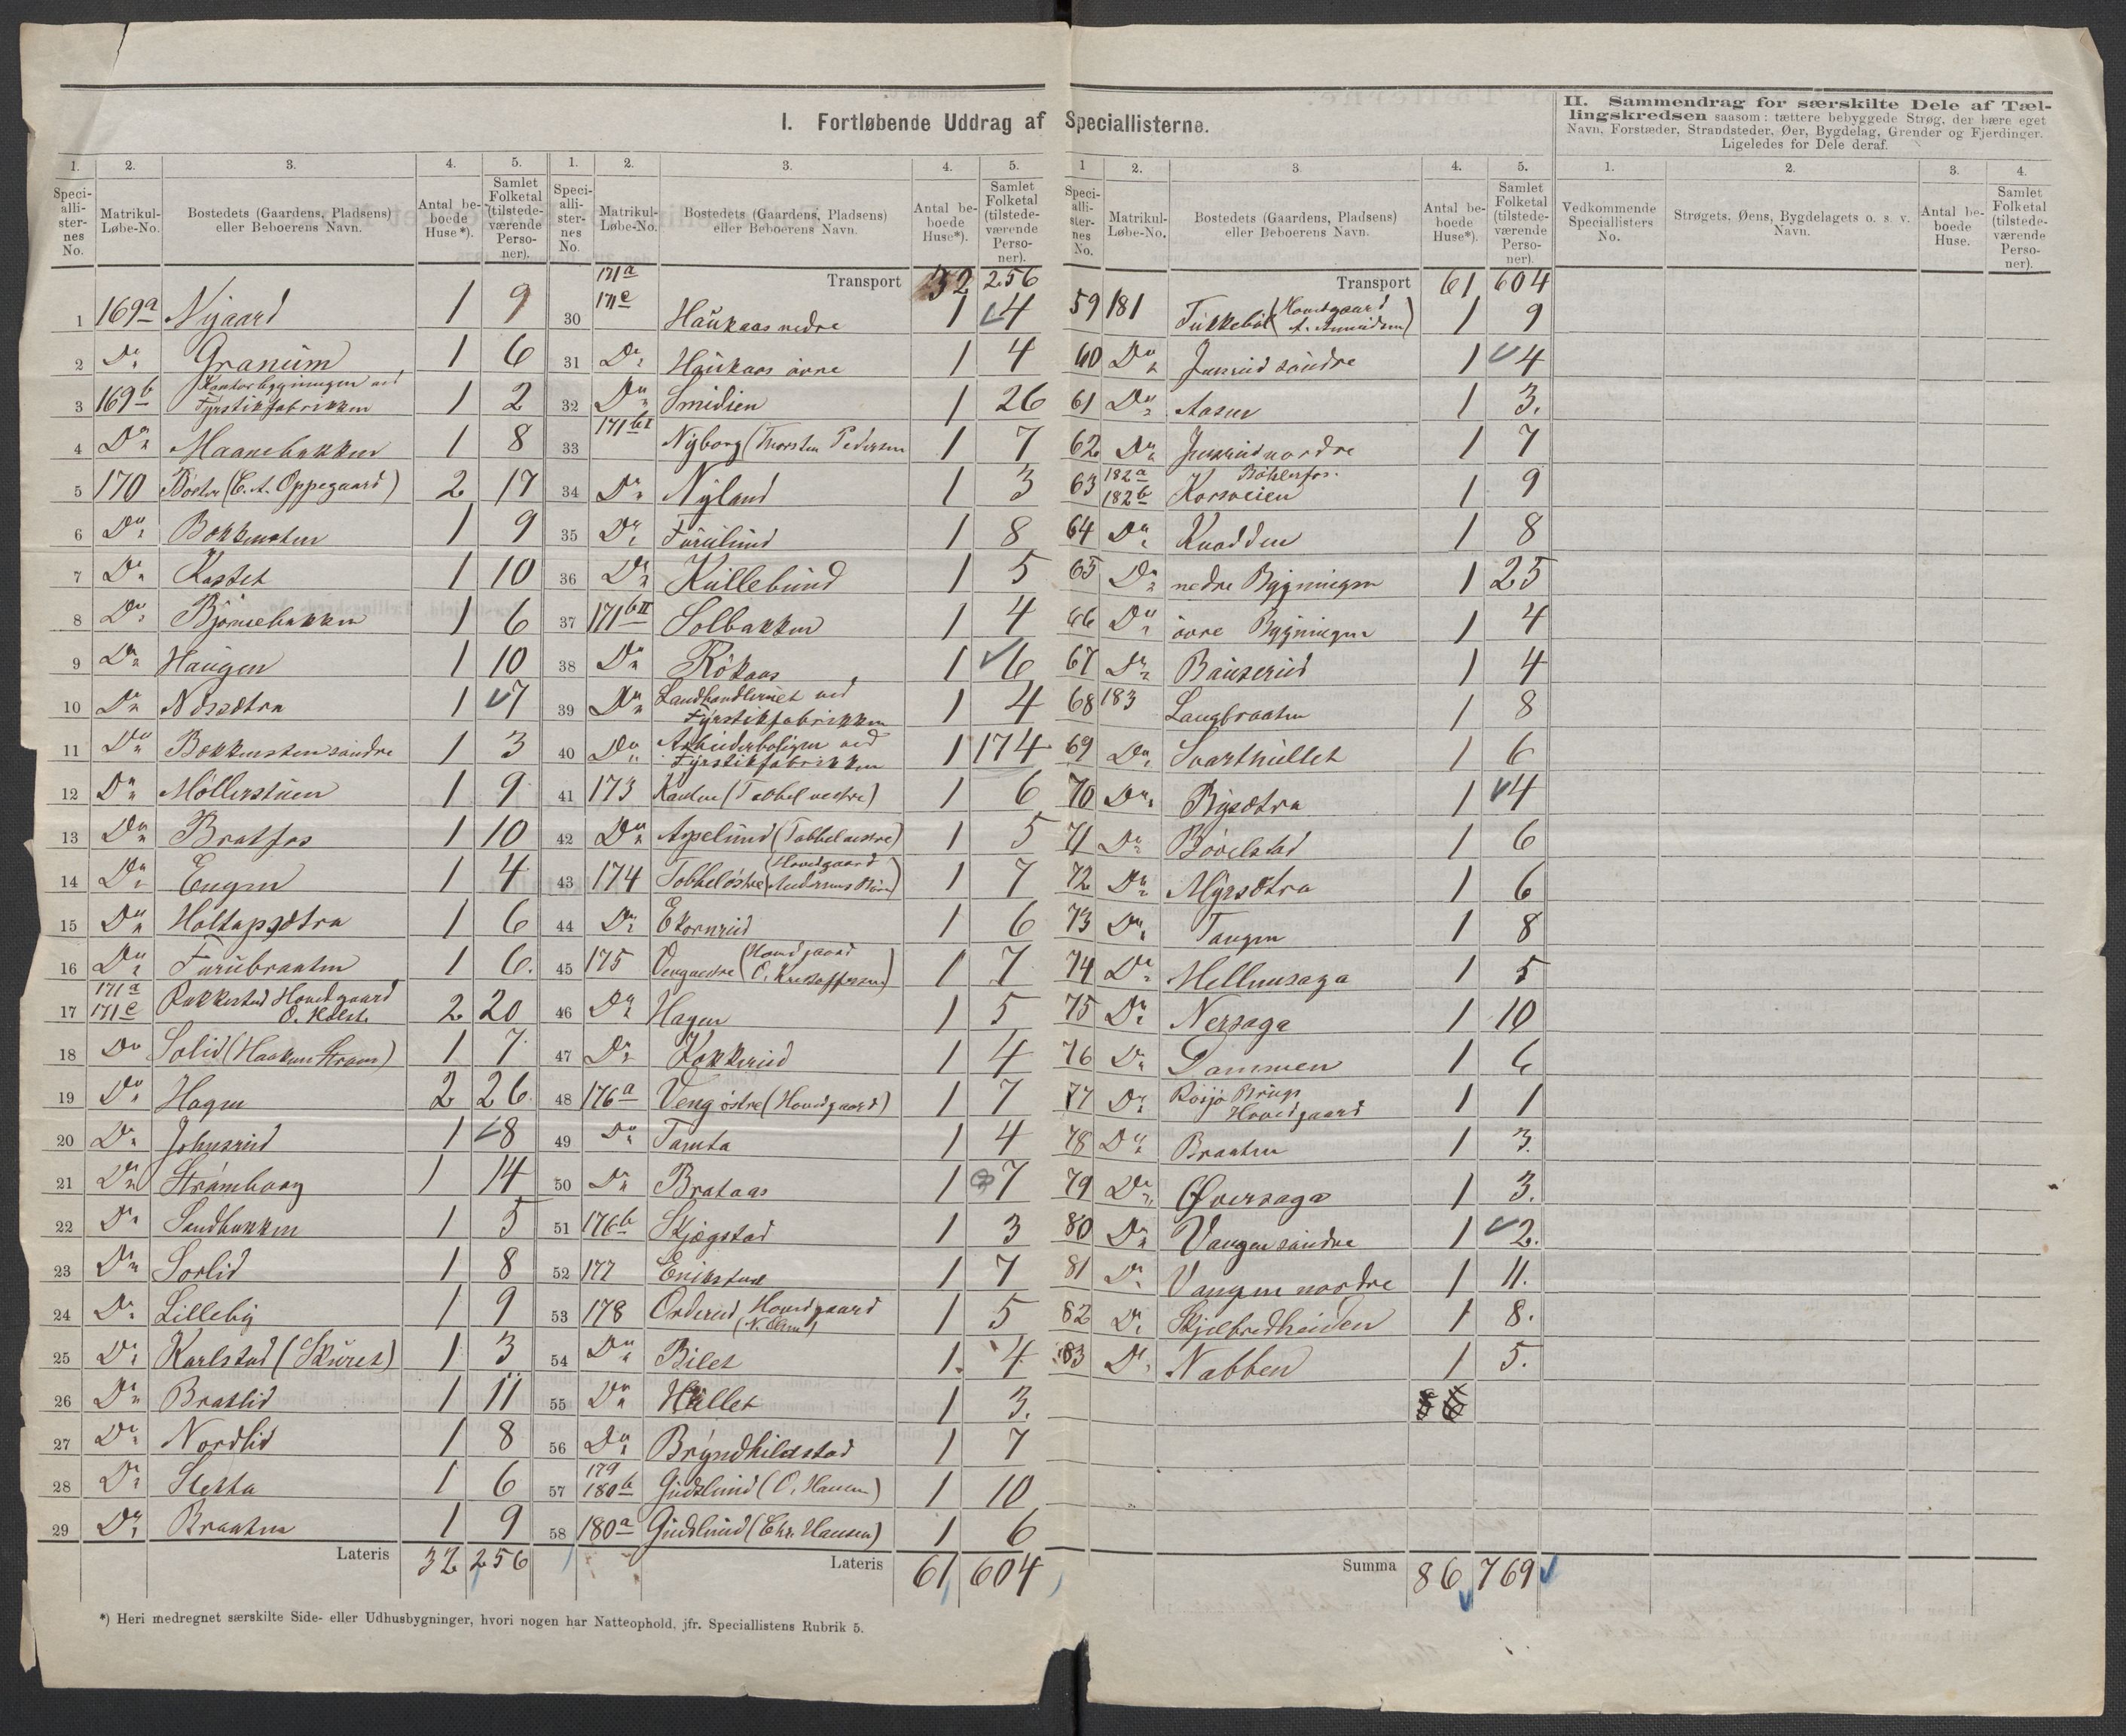 I. Fortløbende Uddrag af Speciallisterne.
II. Sammendrag for særskilte Dele af Tæl-
lingskredsen saasom: tættere bebyggede Strøg, der bære eget
Navn, Forstæder, Strandsteder, Øer, Bygdelag, Grender og Fjerdinger.
Ligeledes for Dele deraf.
1. 2. 3. 4. 5.
Speci-alli-ster-nes No. Matrikul-Løbe-No. Bostedets (Gaardens, Pladsens) eller Beboerens Navn. Antal be-boede Huse*). Samlet Folketal (tilstede-værende Perso-ner).
1 169a Nygaard 1 9
2 Do Granum 1 6
3 169b Kontorbygningen ved Fyrstikfabrikken 1 2
4 Do Maanebakken 1 8
5 170 (E. A. Oppegaard) 2 17
6 Do Bekkensten 1 9
7 Do Kastet 1 10
8 Do Bjørnebakken 1 6
9 Do Haugen 1 10
10 Do Næssætra 1 7
11 Do Bekkensten søndre 1 3
12 Do Møllerstuen 1 9
13 Do Bratfos 1 10
14 Do Engen 1 4
15 Do Holtapsætra 1 6
16 Do Furubraaten 1 6.
17 171a 171c Rakkestad Hovedgaard O. Holst 2 20
18 Do Solid (Haaken Strøm) 1 7
19 Do Hagen 2 26
20 Do Johnsrud 1 8
21 Do Strømborg 1 14
22 Do Sandbakken 1 5
23 Do Sorlid 1 8
24 Do Lilleby 1 9
25 Do Karlstad (Skuret) 1 3
26 Do Bratlid 1 11
27 Do Nordlid 1 8
28 Do Slekta 1 6
29 Do Braaten 1 9
Lateris 32 256
1. 2. 3. 4. 5.
Speci-alli-ster-nes No. Matrikul-Løbe-No. Bostedets (Gaardens, Pladsens) eller Beboerens Navn. Antal be-boede Huse*). Samlet Folketal (tilstede-værende Perso-ner).
Transport 32 256
30 171a 171c Haukaas nedre 1 4
31 Do Haukaas övre 1 4
32 Do Smidien 1 26
33 171bI Nyborg (Thorsten Pedersen 1 7
34 Do Nyland 1 3
35 Do Furulund 1 8
36 Do Kullebund 1 5
37 171bII Solbakken 1 4
38 Do Rökaas 1 6
39 Do Landhandleriet ved Fyrstikfabrikken 1 4
40 Do Arbeiderboligen ved Fyrstikfabrikken 1 174
41 173 (Tobbel vestre) 1 6
42 Do Aspelund (Tobbel vestre) 1 5
43 174 Tobbel östre (Hovedgaard 1 7
44 Do Ekornrud 1 6
45 175 Veng vestre (Hovedgaard O. Kristoffersen) 1 7
46 Do Hagen 1 5
47 Do Kokkerud 1 4
48 176a Veng östre (Hovedgaard) 1 7
49 Do Tamta 1 4
50 Do Brataas 1 7
51 176b Skjægstad 1 3
52 177 Erikstad 1 7
53 178 Orderud Hovedgaard (N. Olsen) 1 5
54 Do Bilet 1 4
55 Do Hullet 1 3.
56 Do Bryndhildstad 1 7
57 179 180b Gudslund (O. Hansen) 1 10
58 180a Gudslund (Chr. Hansen) 1 6
Lateris 61 604
1 2. 3 4. 5.
Speci-alli-ster-nes No. Matrikul-Løbe-No. Bostedets (Gaardens, Pladsens) eller Beboerens Navn. Antal be-boede Huse*). Samlet Folketal (tilstede-værende Perso-ner).
Transport 61 604
59 181 Tukkeböl (Hovedgaard A. Amundsen) 1 9
60 Do Jusrud söndre 1 4
61 Do Aasen 1 3.
62 Do Jusrud nordre 1 7
63 182a 182b Böhlerfos. Korsveien 1 9
64 Do Knadden 1 8
65 Do nedre Bygningen 1 25
66 Do övre Bygningen 1 4
67 Do Bauserud 1 4
68 183 Langbraaten 1 8
69 Do Svarthullet 1 6
70 Do Rysætra 1 4
71 Do Bövelstad 1 6
72 Do Myrsætra 1 6
73 Do Tangen 1 8
74 Do Mellemsaga 1 5
75 Do Nersaga 1 10
76 Do Dammen 1 6
77 Do Rösjö Brugs Hovedgaard 1 1
78 Do Braaten 1 3.
79 Do Øversaga 1 3.
80 Do Vangen söndre 1 2.
81 Do Vangen nordre 1 11.
82 Do Skjelbredheiden 1 8.
83 Do Nabben 1 5.
Summa 86 769
1. 2. 3. 4.
Vedkommende Speciallisters No. Strøgets, Øens, Bygdelagets o. s. v. Navn. Antal be-boede Huse. Samlet Folketal (tilstede-værende Perso-ner).
*) Heri medregnet særskilte Side- eller Udhusbygninger, hvori nogen har Natteophold, jfr. Speciallistens Rubrik 5.